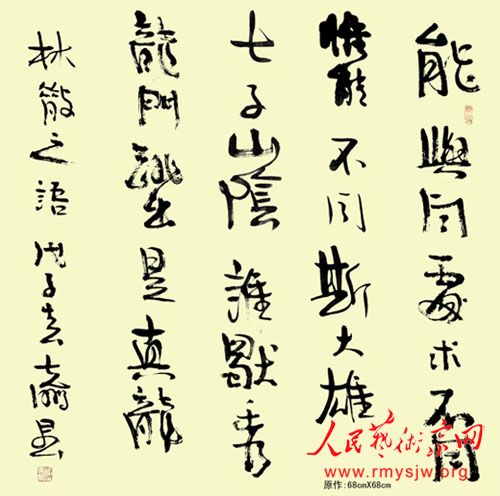 能與同處求不同
惟能不同斯大雄
七子山陰誰獨秀
龍門跳出是真龍
林散之語 戊子
人民藝術家网
www.rmysjw.org
原作:68cmX68cm